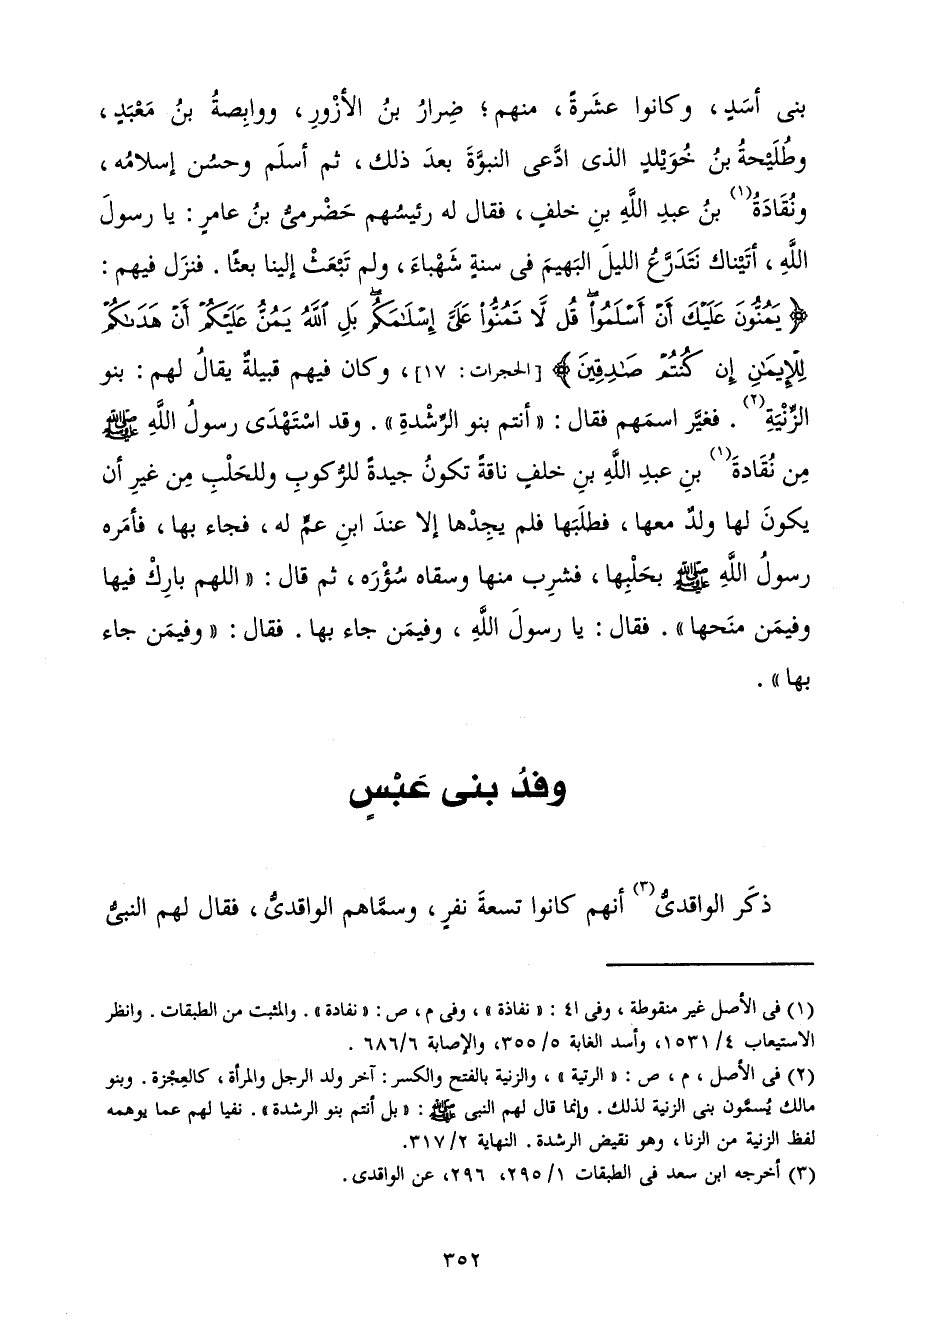 بنى أسَدٍ ، وكانوا عشَرةً ، منهم ؛ ضِرارُ بنُ الأزْورِ ، ووابِصةُ بنُ مَعْبَدٍ ،
وطُلَيْحةُ بنُ خُوَيْلدٍ الذى ادَّعى النبوَّةَ بعدَ ذلك ، ثم أسلَم وحسُن إسلامُه ،
ونُقَادَةُ(١) بنُ عبدِ اللَّهِ بنِ خلفٍ ، فقال له رئيسُهم حَضْرمىُّ بنُ عامرٍ : يا رسولَ
اللَّهِ ، أتَيْناك نَتَدَرَّعُ الليلَ البَهيمَ فى سنةٍ شَهْباءَ ، ولم تَبْعَثْ إلينا بعثًا . فنزَل فيهم :
﴿ يَمُنُّونَ عَلَيْكَ أَنْ أَسْلَمُواْۖ قُل لَّا تَمُنُّواْ عَلَىَّ إِسْلَٰمَكُمۖ بَلِ ٱللَّهُ يَمُنُّ عَلَيْكُمْ أَنْ هَدَىٰكُمْ
لِلْإِيمَٰنِ إِن كُنتُمْ صَٰدِقِينَ ﴾ [الحجرات : ١٧] ، وكان فيهم قبيلةٌ يقالُ لهم : بنو
الزِّنْيَةِ(٢) . فغيَّر اسمَهم فقال : « أنتم بنو الرِّشْدةِ » . وقد اسْتَهْدَى رسولُ اللَّهِ ﷺ
مِن نُقَادةَ(١) بنِ عبدِ اللَّهِ بنِ خلفٍ ناقةً تكونُ جيدةً للرُّكوبِ وللحَلْبِ مِن غيرِ أن
يكونَ لها ولدٌ معها ، فطلَبَها فلم يجِدْها إلا عندَ ابنِ عمٍّ له ، فجاء بها ، فأمَره
رسولُ اللَّهِ ﷺ بحَلْبِها ، فشرِب منها وسقاه سُؤْرَه ، ثم قال : « اللهم بارِكْ فيها
وفيمَن منَحها » . فقال : يا رسولَ اللَّهِ ، وفيمَن جاء بها . فقال : « وفيمَن جاء
بها » .
وفدُ بنى عَبْسٍ
ذكَر الواقدىُّ(٣) أنهم كانوا تسعةَ نفرٍ ، وسمَّاهم الواقدىُّ ، فقال لهم النبىُّ
(١) فى الأصل غير منقوطة ، وفى ٤١ : « نفاذة » ، وفى م ، ص : « نفادة » . والمثبت من الطبقات . وانظر
الاستيعاب ٤/ ١٥٣١ ، وأسد الغابة ٥/ ٣٥٥ ، والإصابة ٦/ ٦٨٦ .
(٢) فى الأصل ، م ، ص : « الرتية » ، والزنية بالفتح والكسر : آخر ولد الرجل والمرأة ، كالعِجْزة . وبنو
مالك يُسمَّون بنى الزنية لذلك . وإنما قال لهم النبى ﷺ : « بل أنتم بنو الرشدة » . نفيا لهم عما يوهمه
لفظ الزنية من الزنا ، وهو نقيض الرشدة . النهاية ٢/ ٣١٧ .
(٣) أخرجه ابن سعد فى الطبقات ١/ ٢٩٥ ، ٢٩٦ ، عن الواقدى .
٣٥٢